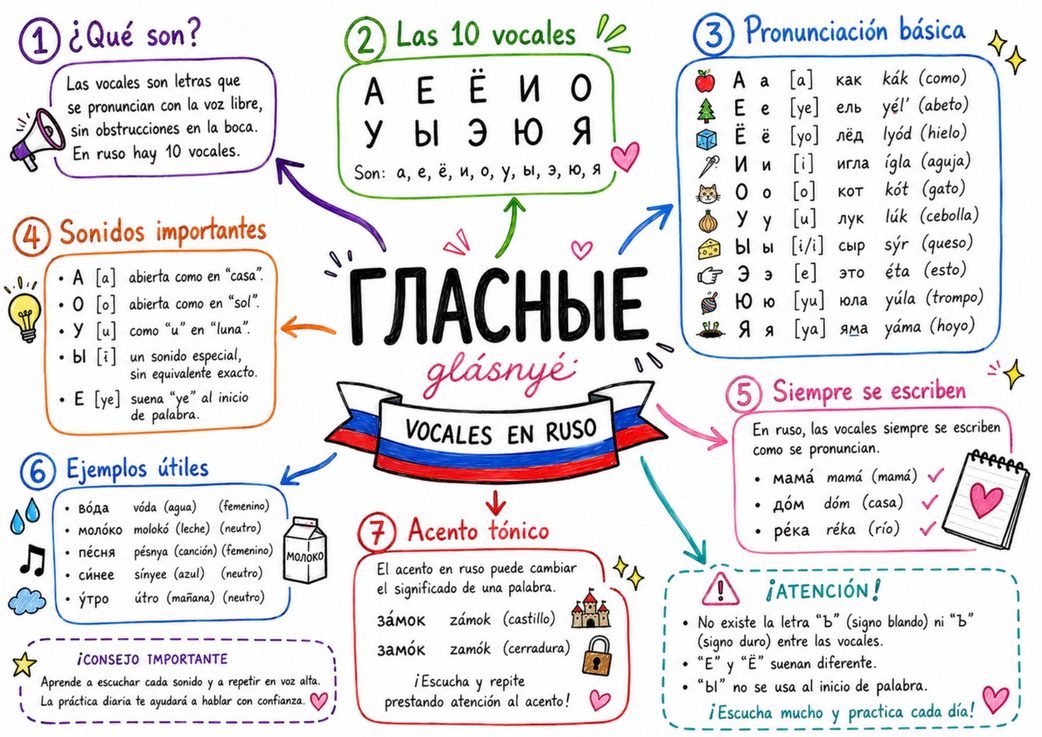 ГЛАСНЫЕ
glásnyé:
VOCALES EN RUSO
1 ¿Qué son?
Las vocales son letras que
se pronuncian con la voz libre,
sin obstrucciones en la boca.
En ruso hay 10 vocales.
2 Las 10 vocales
А Е Ё И О
У Ы Э Ю Я
Son: а, е, ё, и, о, у, ы, э, ю, я
3 Pronunciación básica
А а [a] как kák (como)
Е е [ye] ель yél' (abeto)
Ё ё [yo] лёд lyód (hielo)
И и [i] игла ígla (aguja)
О о [o] кот kót (gato)
У у [u] лук lúk (cebolla)
Ы ы [i/i] сыр sýr (queso)
Э э [e] это éta (esto)
Ю ю [yu] юла yúla (trompo)
Я я [ya] яма yáma (hoyo)
4 Sonidos importantes
• А [a] abierta como en “casa”.
• О [o] abierta como en “sol”.
• У [u] como “u” en “luna”.
• Ы [ï] un sonido especial,
sin equivalente exacto.
• Е [ye] suena “ye” al inicio
de palabra.
5 Siempre se escriben
En ruso, las vocales siempre se escriben
como se pronuncian.
• мамá mamá (mamá) ✓
• дóм dóm (casa) ✓
• рéка réka (río) ✓
6 Ejemplos útiles
• вóда vóda (agua) (femenino)
• молóко molokó (leche) (neutro)
• пéсня pésnya (canción) (femenino)
• си́нее sínyee (azul) (neutro)
• у́тро útro (mañana) (neutro)
МОЛОКО
7 Acento tónico
El acento en ruso puede cambiar
el significado de una palabra.
зáмок zámok (castillo)
замóк zamók (cerradura)
¡Escucha y repite
prestando atención al acento!
¡CONSEJO IMPORTANTE
Aprende a escuchar cada sonido y a repetir en voz alta.
La práctica diaria te ayudará a hablar con confianza.
¡ATENCIÓN!
• No existe la letra “Ь” (signo blando) ni “Ъ”
(signo duro) entre las vocales.
• “Е” y “Ё” suenan diferente.
• “Ы” no se usa al inicio de palabra.
¡Escucha mucho y practica cada día!